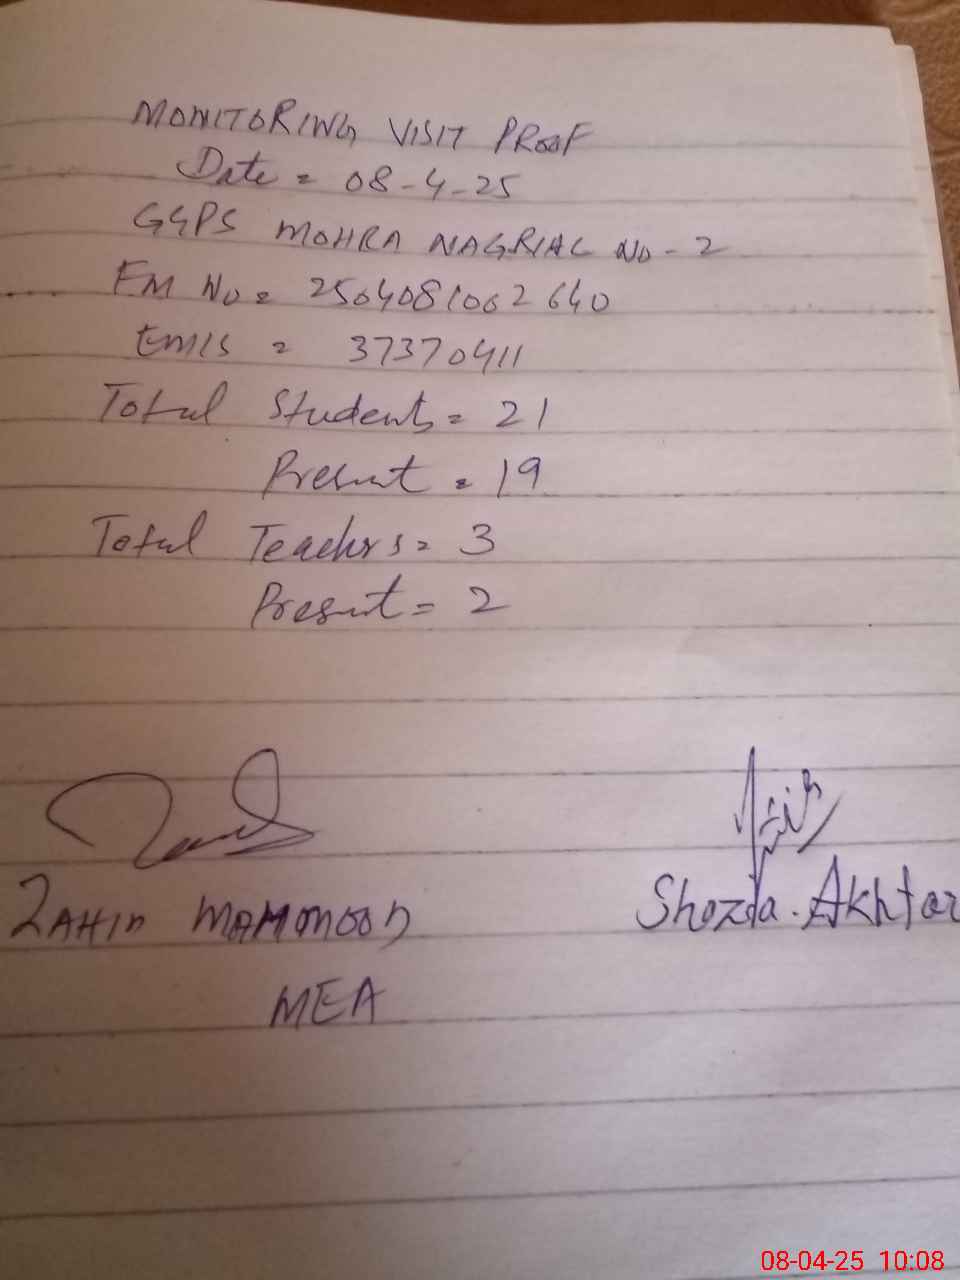 MONITORING VISIT PROOF
Date = 08-4-25
GGPS MOHRA NAGRIAL No-2
FM No = 2504081002640
EMIS = 37370411
Total Students = 21
Present = 19
Total Teachers = 3
Present = 2
ZAHID MAHMOOD
Shozda. Akhtar
MEA
08-04-25 10:08